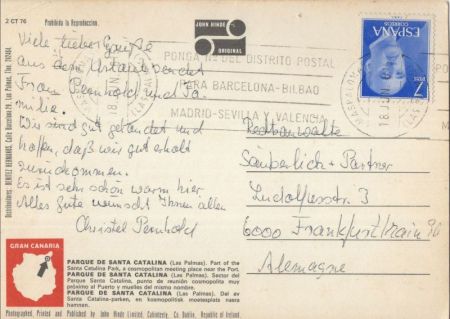 2 CT 76
Prohibida la Reproduccion.
JOHN HINDE
ORIGINAL
Viele liebe Grüße
aus dem Urlaub sendet
Frau Pernhold und Fa-
milie.
Wir sind gut gelandet und
hoffen, daß wir gut erhalt
zurückommen.
Es ist sehr schön warm hier
Alles Gute wünscht Ihnen allen
Christel Pernhold
PONGA Nº DEL DISTRITO POSTAL
PARA BARCELONA-BILBAO
MADRID-SEVILLA Y VALENCIA
ESPAÑA
CORREOS
7
PTAS
MASPALOMAS
18 JUN
Rechtsanwälte
Säuberlich + Partner
Ludolfusstr. 3
6000 Frankfurt/Main 90
Alemagne
GRAN CANARIA
PARQUE DE SANTA CATALINA (Las Palmas). Part of the
Santa Catalina Park, a cosmopolitan meeting place near the Port.
PARQUE DE SANTA CATALINA (Las Palmas). Sector del
Parque Santa Catalina, punto de reunión cosmopolita muy
próximo al Puerto y muelles del mismo nombre.
PARQUE DE SANTA CATALINA (Las Palmas). Del av
Santa Catalina-parken, en kosmopolitisk moetesplats nasra
hamnen.
Photographed, Printed and Published by John Hinde Limited, Cabinteely, Co. Dublin, Republic of Ireland.